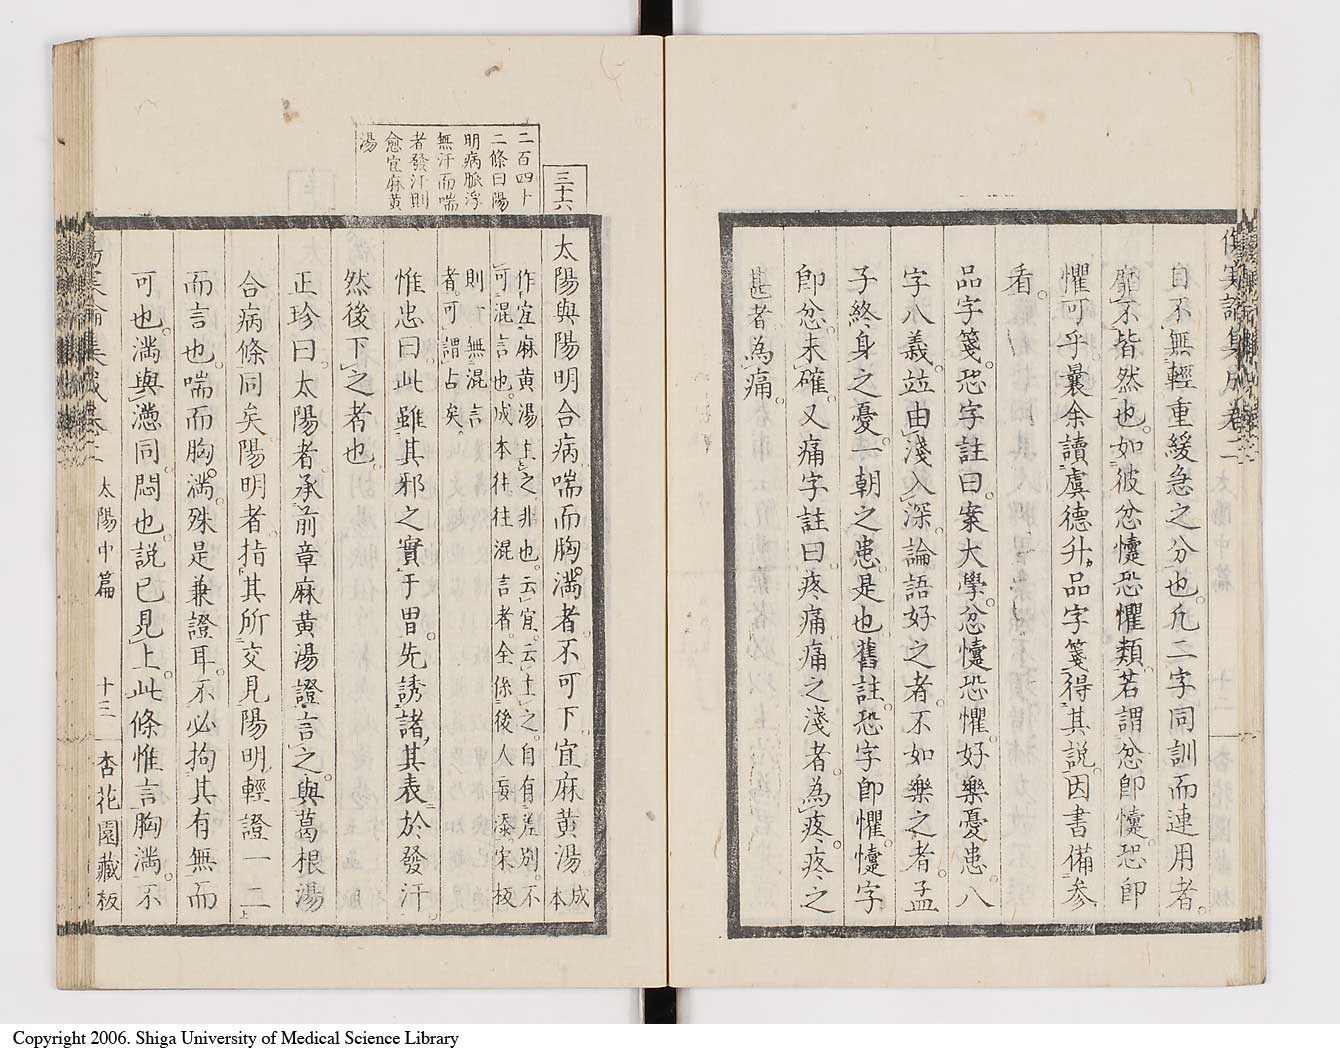 傷寒論集成卷二
自不無輕重緩急之分也凡二字同訓而連用者
靡不皆然也如彼忿懥恐懼類若謂忿即懥恐即
懼可乎曩余讀虞德升品字箋得其說因書備參
看
品字箋恐字註曰案大學忿懥恐懼好樂憂患八
字八義竝由淺入深論語好之者不如樂之者孟
子終身之憂一朝之患是也舊註恐字即懼懥字
即忿未確又痛字註曰疼痛痛之淺者為疼疼之
甚者為痛
三十六
二百四十
二條曰陽
明病脈浮
無汗而喘
者發汗則
愈宜麻黃
湯
太陽與陽明合病喘而胸滿者不可下宜麻黃湯成本
作宜麻黃湯上之非也云宜云上之自有差別不
可混言也成本往往混言者全係後人妄添宋板
則了無混言
者可謂占矣
惟忠曰此雖其邪之實于胃先誘諸其表於發汗
然後下之者也
正珍曰太陽者承前章麻黃湯證言之與葛根湯
合病條同矣陽明者指其所交見陽明輕證一二上
而言也喘而胸滿殊是兼證耳不必拘其有無而
可也滿與懣同悶也說已見上此條惟言胸滿不
傷寒論集成卷二 太陽中篇 十三 杏花園藏板
Copyright 2006. Shiga University of Medical Science Library